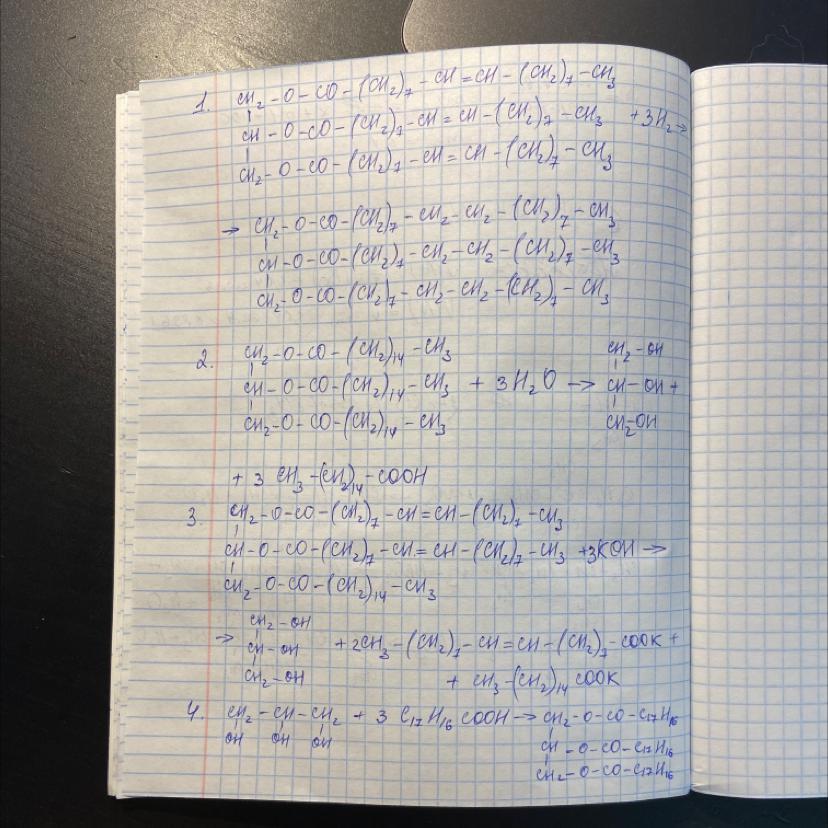 1. CH₂-O-CO-(CH₂)₇-CH=CH-(CH₂)₇-CH₃
CH-O-CO-(CH₂)₇-CH=CH-(CH₂)₇-CH₃ +3H₂→
CH₂-O-CO-(CH₂)₇-CH=CH-(CH₂)₇-CH₃
→ CH₂-O-CO-(CH₂)₇-CH₂-CH₂-(CH₂)₇-CH₃
CH-O-CO-(CH₂)₇-CH₂-CH₂-(CH₂)₇-CH₃
CH₂-O-CO-(CH₂)₇-CH₂-CH₂-(CH₂)₇-CH₃
2. CH₂-O-CO-(CH₂)₁₄-CH₃ CH₂-OH
CH-O-CO-(CH₂)₁₄-CH₃ + 3H₂O → CH-OH +
CH₂-O-CO-(CH₂)₁₄-CH₃ CH₂-OH
+ 3 CH₃-(CH₂)₁₄-COOH
3. CH₂-O-CO-(CH₂)₇-CH=CH-(CH₂)₇-CH₃
CH-O-CO-(CH₂)₇-CH=CH-(CH₂)₇-CH₃ +3KOH→
CH₂-O-CO-(CH₂)₁₄-CH₃
CH₂-OH
→ CH-OH +2CH₃-(CH₂)₇-CH=CH-(CH₂)₇-COOK +
CH₂-OH + CH₃-(CH₂)₁₄COOK
4. CH₂-CH-CH₂ + 3 C₁₇H₁₆COOH→ CH₂-O-CO-C₁₇H₁₆
OH OH OH CH-O-CO-C₁₇H₁₆
CH₂-O-CO-C₁₇H₁₆